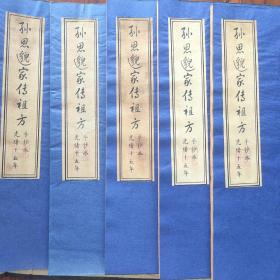 孙思邈家传祖方
手抄本
光绪十五年
孙思邈家传祖方
手抄本
光绪十五年
孙思邈家传祖方
手抄本
光绪十五年
孙思邈家传祖方
手抄本
光绪十五年
孙思邈家传祖方
手抄本
光绪十五年